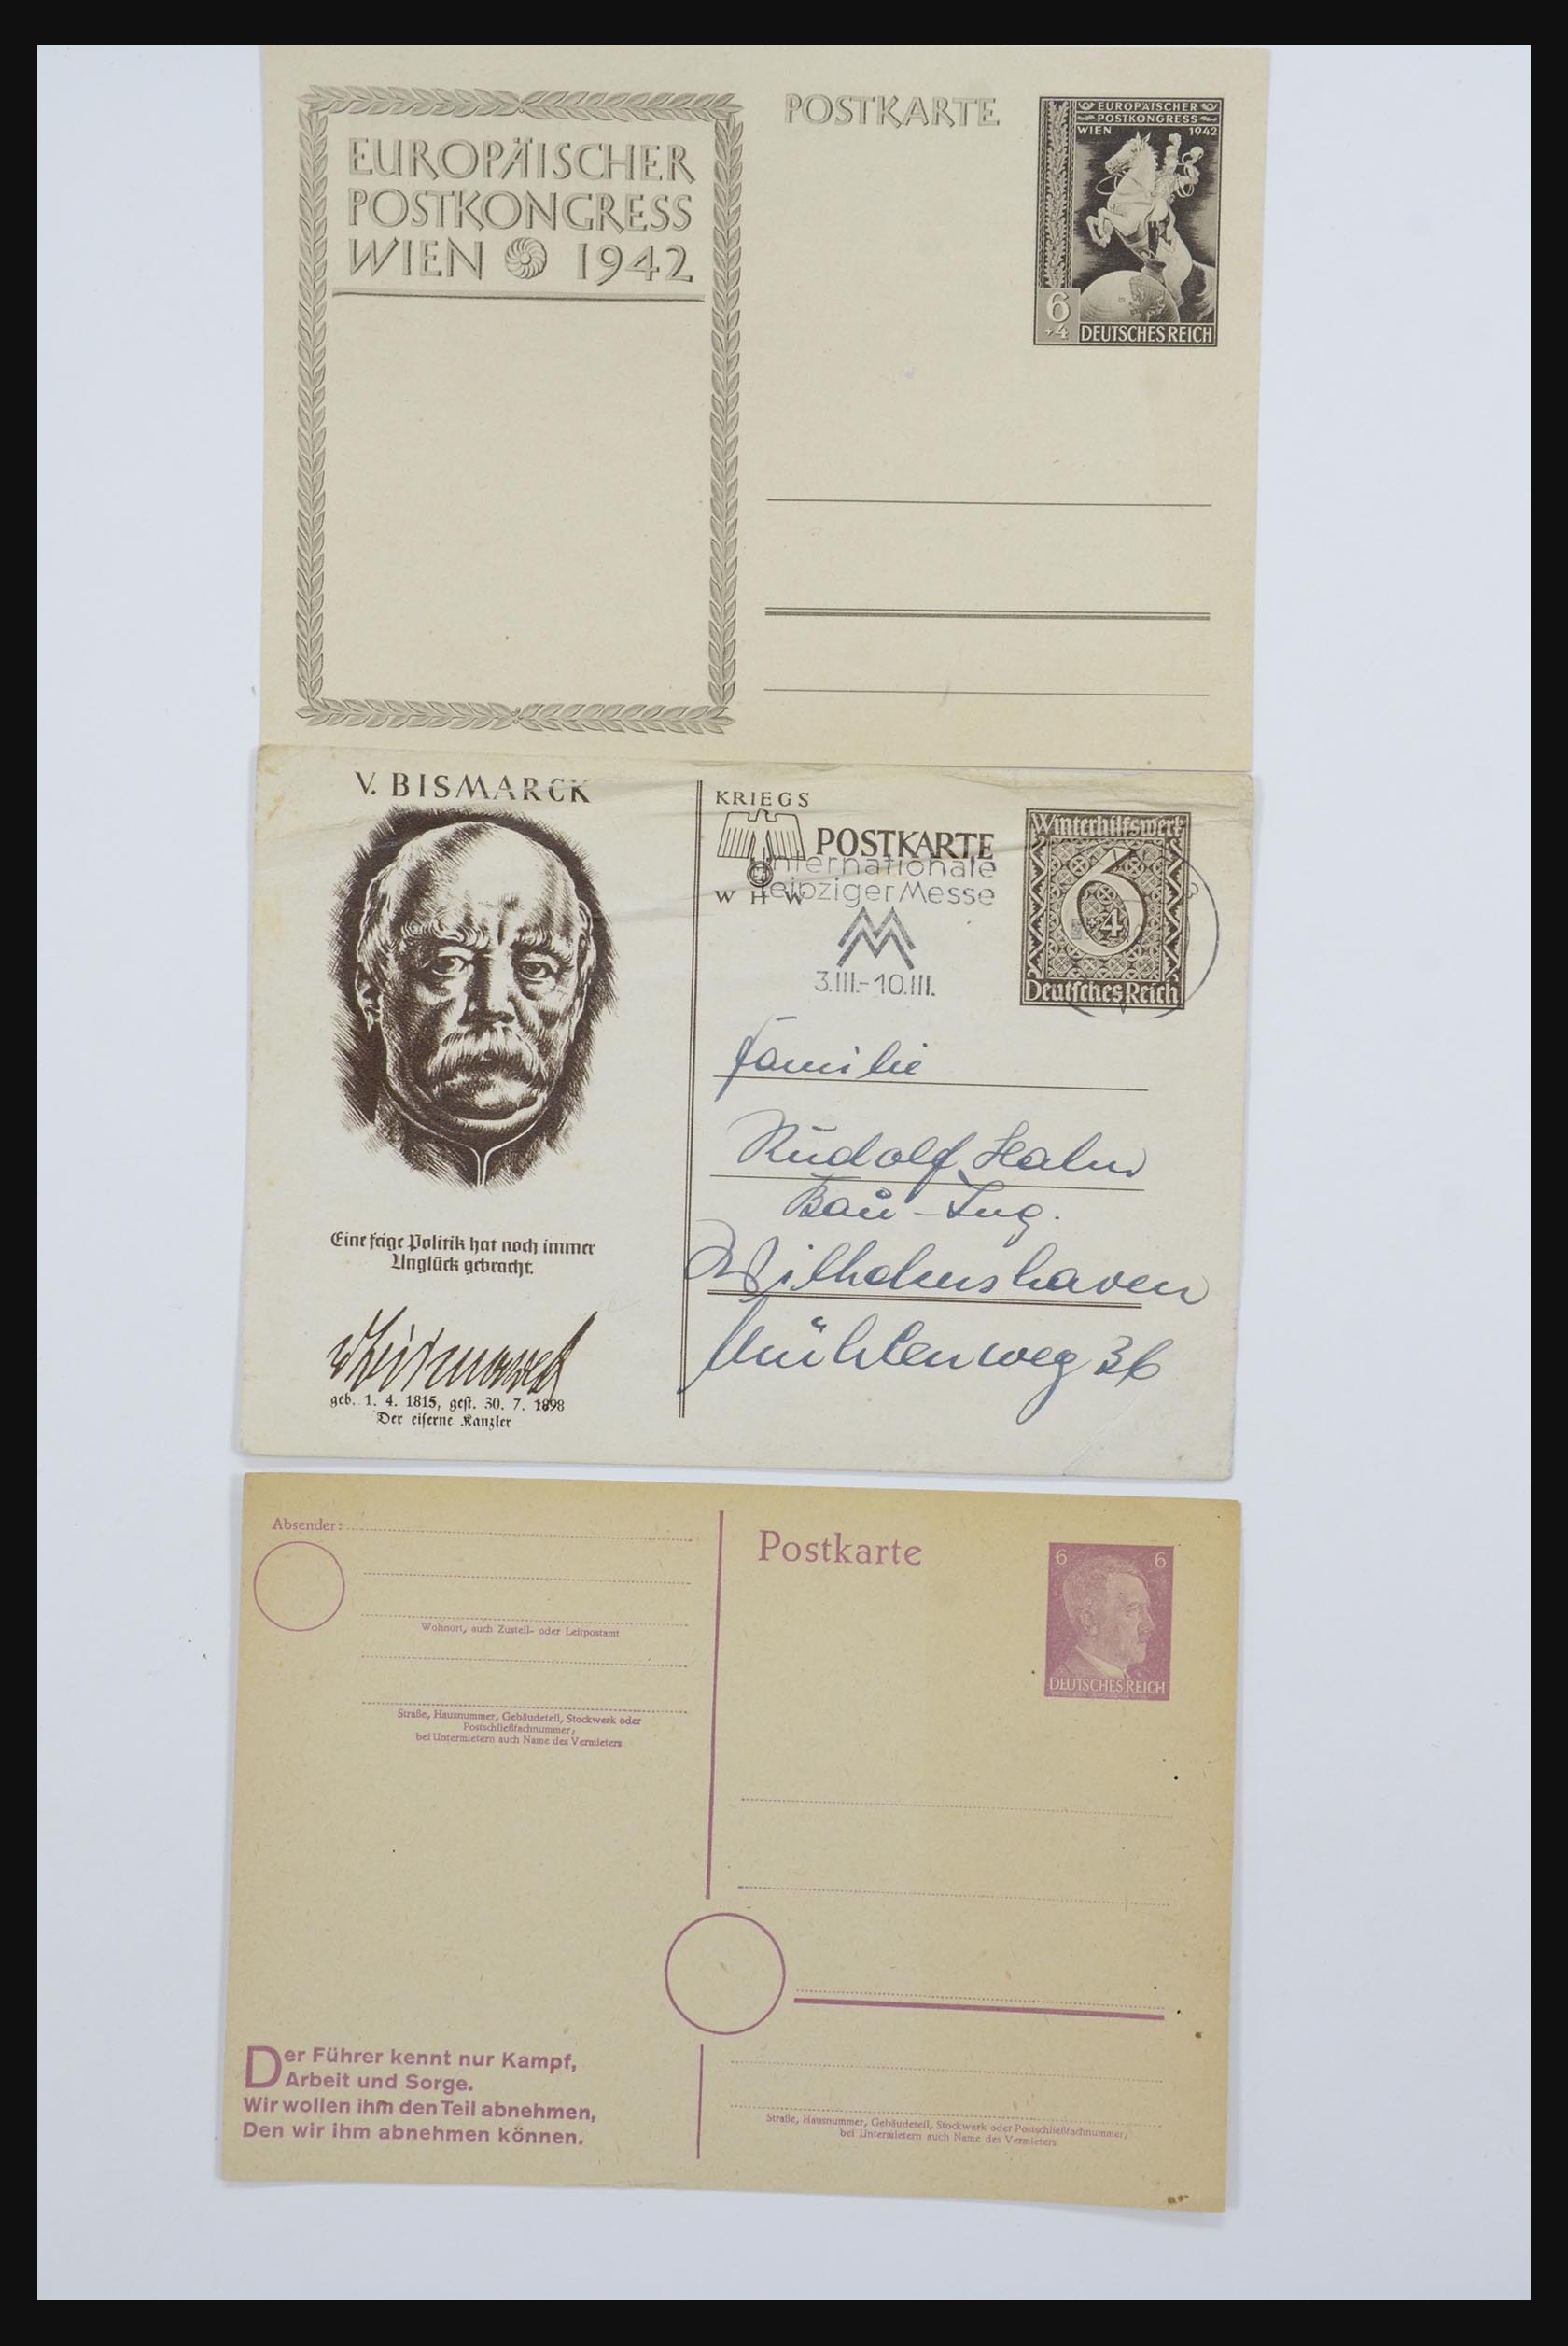 EUROPÄISCHER
POSTKONGRESS
WIEN 1942
POSTKARTE
EUROPÄISCHER
POSTKONGRESS
WIEN 1942
6
+4
DEUTSCHES REICH
V. BISMARCK
Eine feige Politik hat noch immer
Unglück gebracht.
v Bismarck
geb. 1. 4. 1815, gest. 30. 7. 1898
Der eiserne Kanzler
KRIEGS
POSTKARTE
W H W
Internationale
Leipziger Messe
3.III.-10.III.
Winterhilfswerk
6
+4
Deutsches Reich
Familie
Rudolf Hahn
Bau-Ing.
Wilhelmshaven
Mühlenweg 36
Absender:
Wohnort, auch Zustell- oder Leitpostamt
Straße, Hausnummer, Gebäudeteil, Stockwerk oder
Postschließfachnummer,
bei Untermietern auch Name des Vermieters
Der Führer kennt nur Kampf,
Arbeit und Sorge.
Wir wollen ihm den Teil abnehmen,
Den wir ihm abnehmen können.
Postkarte
6 6
DEUTSCHES REICH
Straße, Hausnummer, Gebäudeteil, Stockwerk oder Postschließfachnummer,
bei Untermietern auch Name des Vermieters